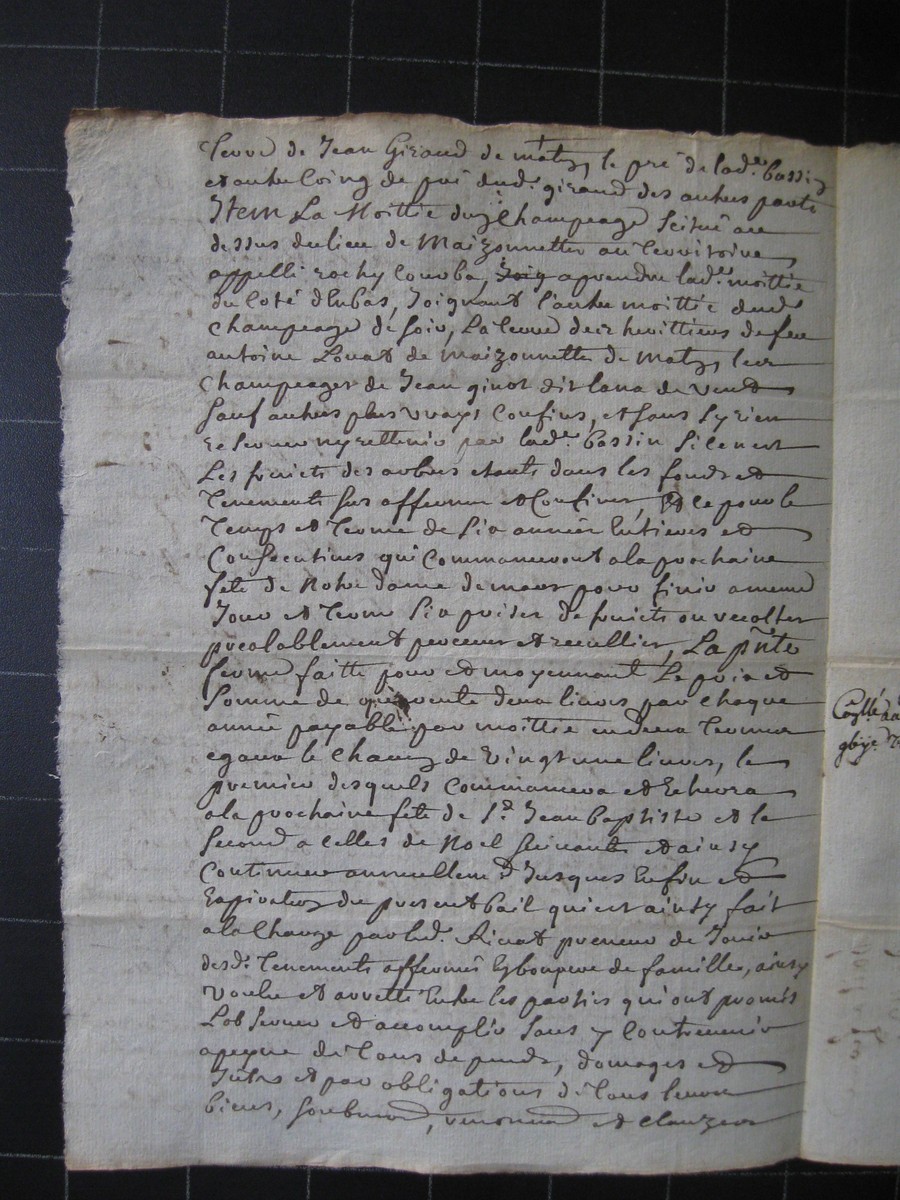 terre de Jean Giraud de matz, le pré de lad.e bassin
et autre Coing de pré dud. giraud des autres parts
Item La Moittié du Champeage Scitué au
dessus du lieu de Maizonnettes au territoire
appellé rochy Courba, Joig aprendre lad.e moittié
du Coté d'Enbas, Joignant l'autre moittié dud.
Champeage de Soir, La terre des heritiers de feu
antoine Louat de maizonnettes de Matz, leur
Champeages de Jean girot dit lana de Vent
Sauf autres plus Vrays Confins, et Sans Sy rien
reServer ny rettenir par lad.e bassin Sile n'est
Les fruicts des arbres etants dans les fonds et
tenements Sus affermés et Confinés, Et ce pour le
Temps et Terme de Six années Entieres et
Consecutives qui Commanceront a la prochaine
fete de Notre dame de mars pour finir a meme
Jour et Terme Six prises de fruicts ou recoltes
prealablement perceues et recullies, La pnte
ferme faitte pour et moyennant Le prix et
Somme de quarente deux livres par Chaque
année payable par moittié en deux Termes
egaux le Chacun de Vingt une livres, le
premier desquels Commancera et Echerra
a la prochaine fete de St. Jean baptiste et le
Second a Celles de Noel Suivante et ainsy
Continuer annuellemt. Jusques Enfin et
Expiration du present bail qui est ainsy fait
a la Charge par led. Airat preneur de Jouir
desd. Tenements affermés En bon pere de famille, ainsy
Voulu et arretté Entre les parties qui ont promis
L'observer et accomplir Sans y Contrevenir
a peyne de Tous depends, domages et
Intts et par obligations de Tous leurs
biens, Soubmis, renonce et Clauzes